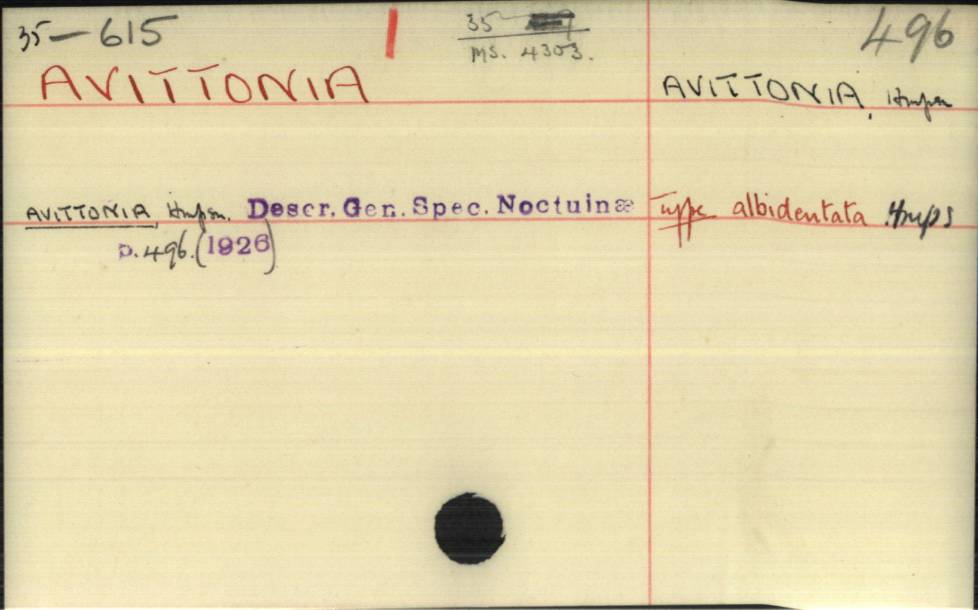 35—615
35
MS. 4303.
496
AVITTONIA
AVITTONIA, Hmpsn
AVITTONIA, Hmpsn. Descr. Gen. Spec. Noctuinæ
p. 496. (1926)
Type albidentata Hmps